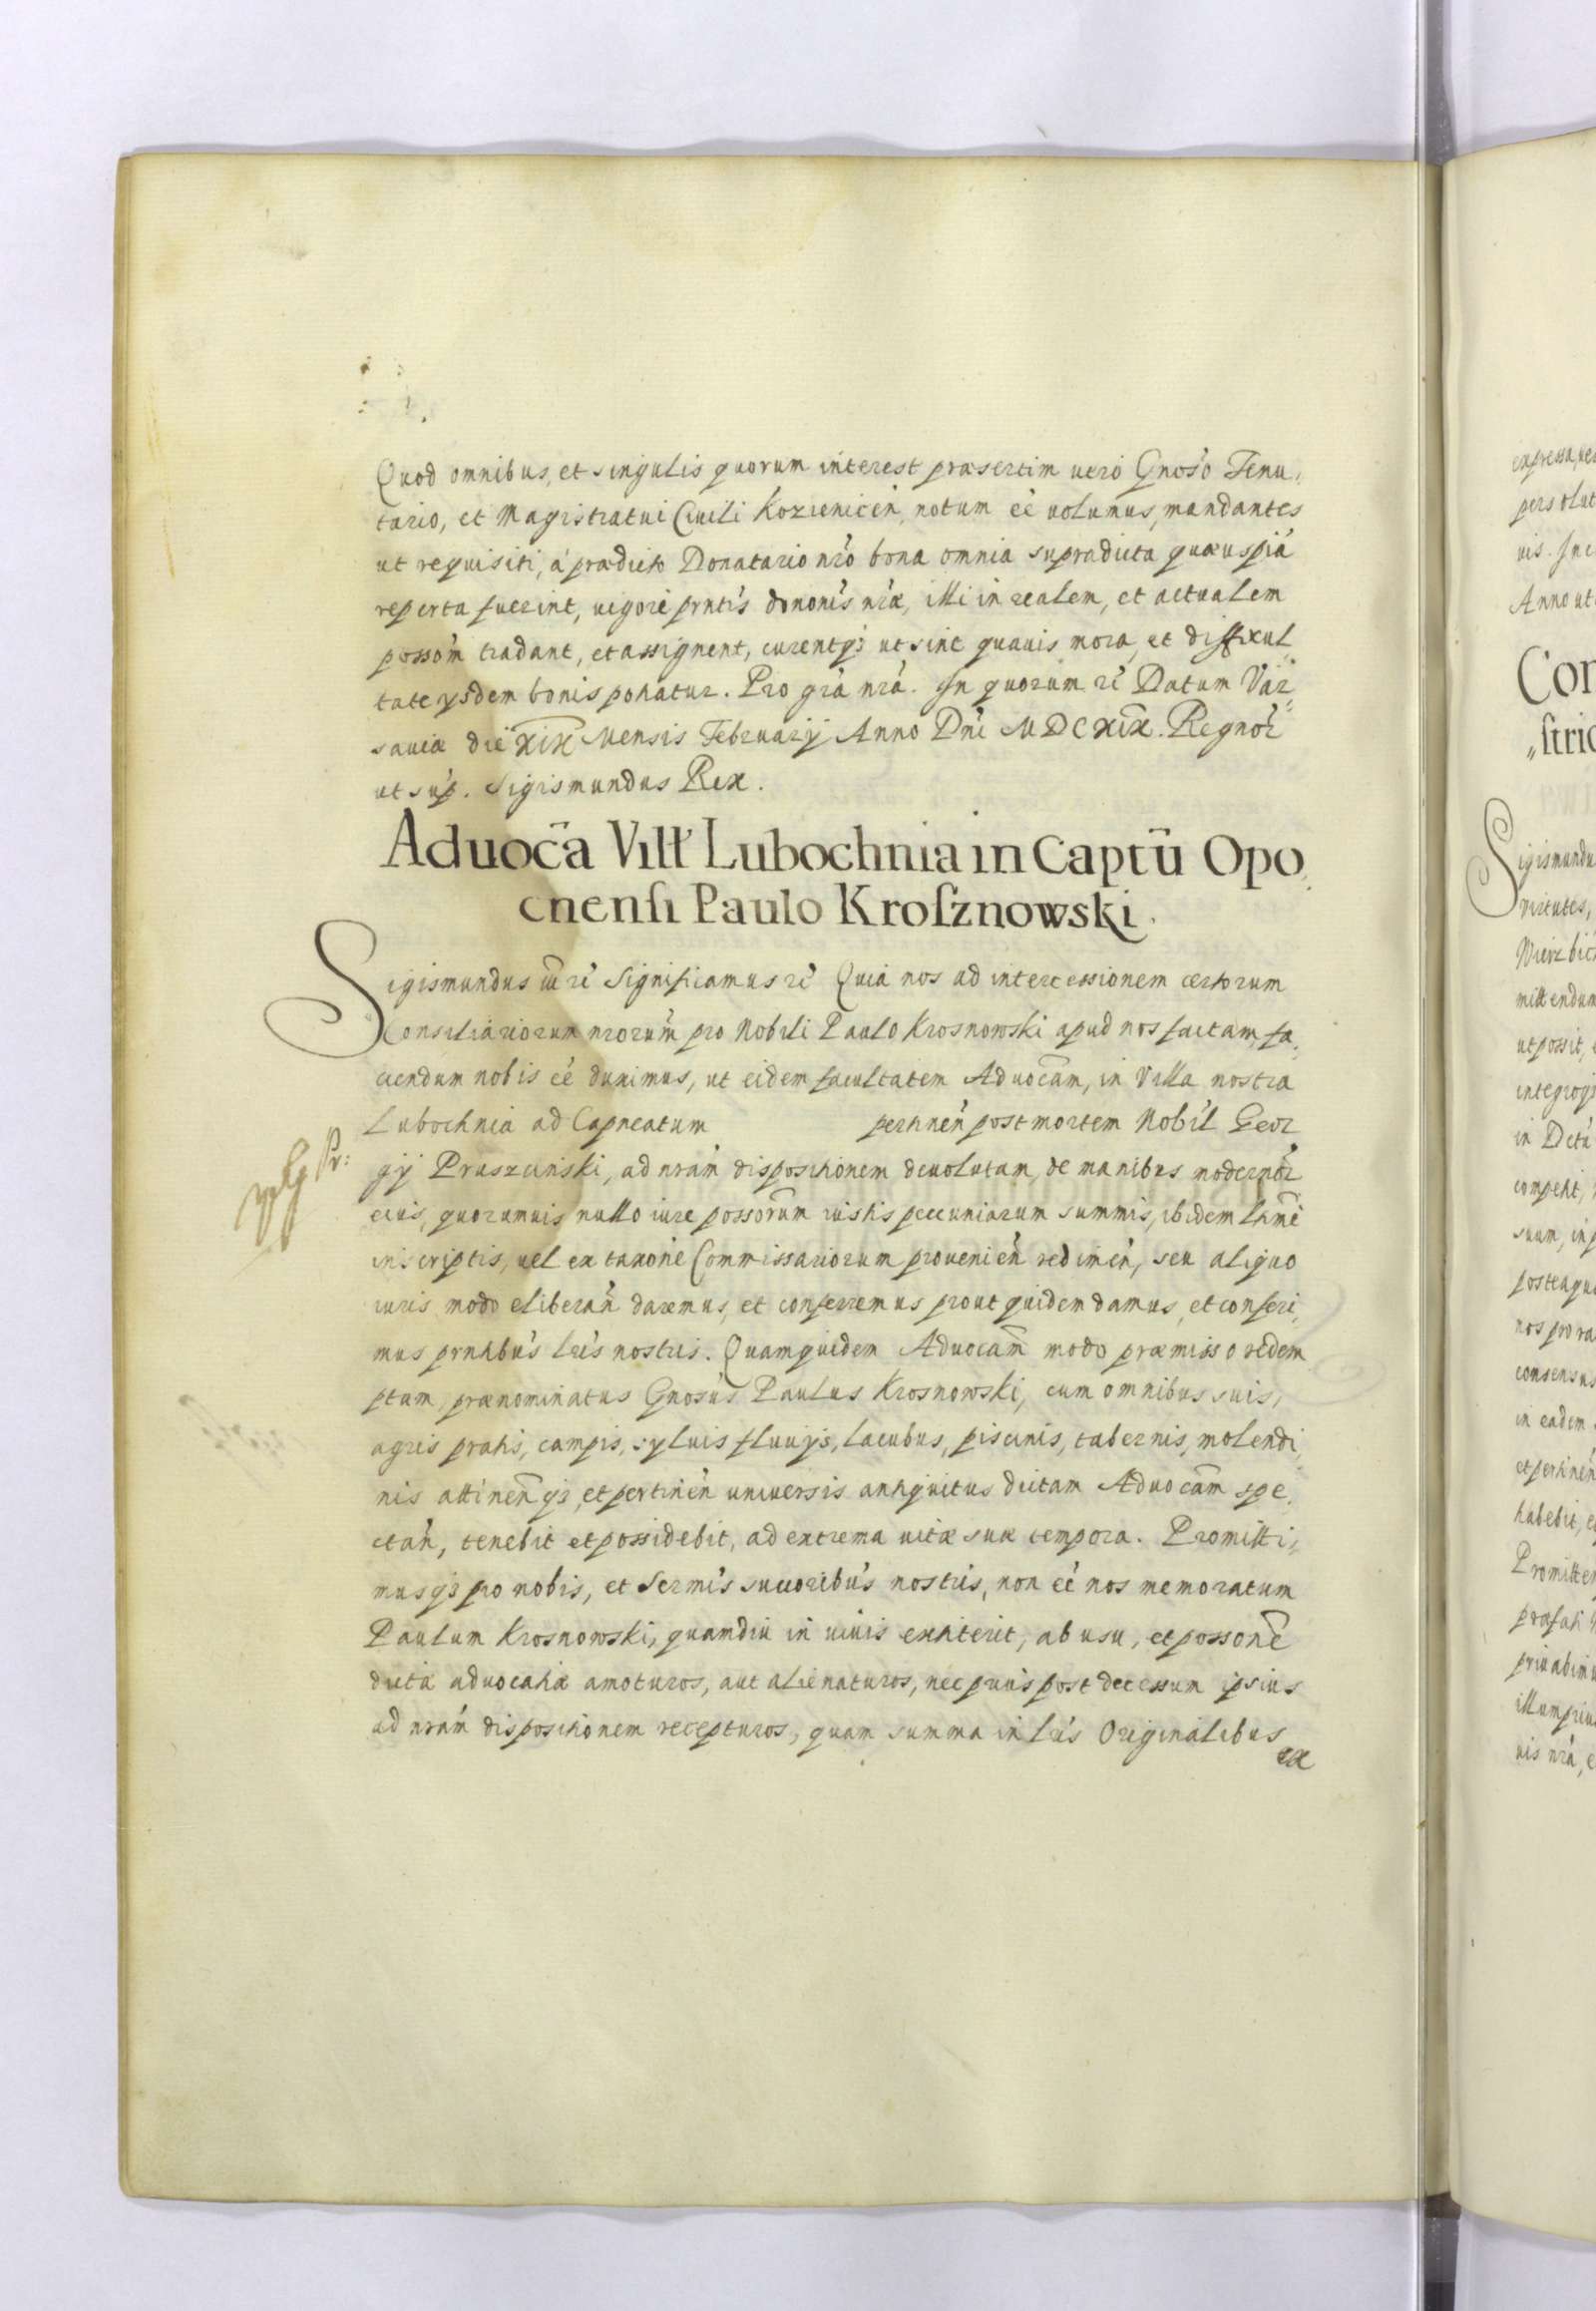 Quod omnibus, et singulis quorum interest præsertim uero Gnoso Tenu,
tario, et Magistratui Ciuili Kozienicen, notum eē uolumus, mandantes
ut requisiti, á prædicto Donatario nro bona omnia supradicta quæuspiā
reperta fuerint, uigore prntis dononis nræ, illi in realem, et actualem
possom tradant, et assignent, curentq₃ ut sine quauis mora, et difficul
tate ysdem bonis potiatur. Pro grā nrā. In quorum rē Datum Var„
sauiæ die XIX Mensis Februarij Anno Dni MDCXIX. Regnor
ut sup. Sigismundus Rex.
Aduocā Vill Lubochnia in Captū Opo,
cnensi Paulo Krosznowski.
Sigismundus iii rē Significamus rē Quia nos ad intercessionem certorum
Consiliariorum nrorum pro Nobili Paulo Krosnowski apud nos factam, fa,
ciendum nobis eē duximus, ut eidem facultatem Aduocam, in Villa nostra
Lubochnia ad Capneatum pertinen post mortem Nobil Geor
gij Pruszcinski, ad nram dispositionem deuolutam, de manibus modernor
eius, quorumuis nullo iure possorum iustis pecuniarum summis, ibidem ltime
inscriptis, uel ex taxone Commissariorum prouenien redimen, seu aliquo
iuris modo eliberan daremus, et conferremus prout quidem damus, et conferi,
mus prntibus lris nostris. Quamquidem Aduocam modo præmisso redem
ptam, prænominatus Gnosus Paulus Krosnowski, cum omnibus suis,
agris pratis, campis, syluis fluuijs, lacubus, piscinis, tabernis, molendi,
nis attinenq₃, et pertinen uniuersis antiquitus dictam Aduocam spe,
ctan, tenebit et possidebit, ad extrema uitæ suæ tempora. Promitti,
musq₃ pro nobis, et Sermis succoribus nostris, non eē nos memoratum
Paulum Krosnowski, quamdiu in uiuis extiterit, ab usu, et possone
dictæ aduocatiæ amoturos, aut alienaturos, nec prius post decessum ipsius
ad nram dispositionem recepturos, quam summa in lris Originalibus
ex